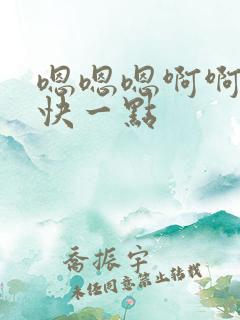 嗯嗯嗯啊啊
快一點
喬振宇
未任同意禁止转载